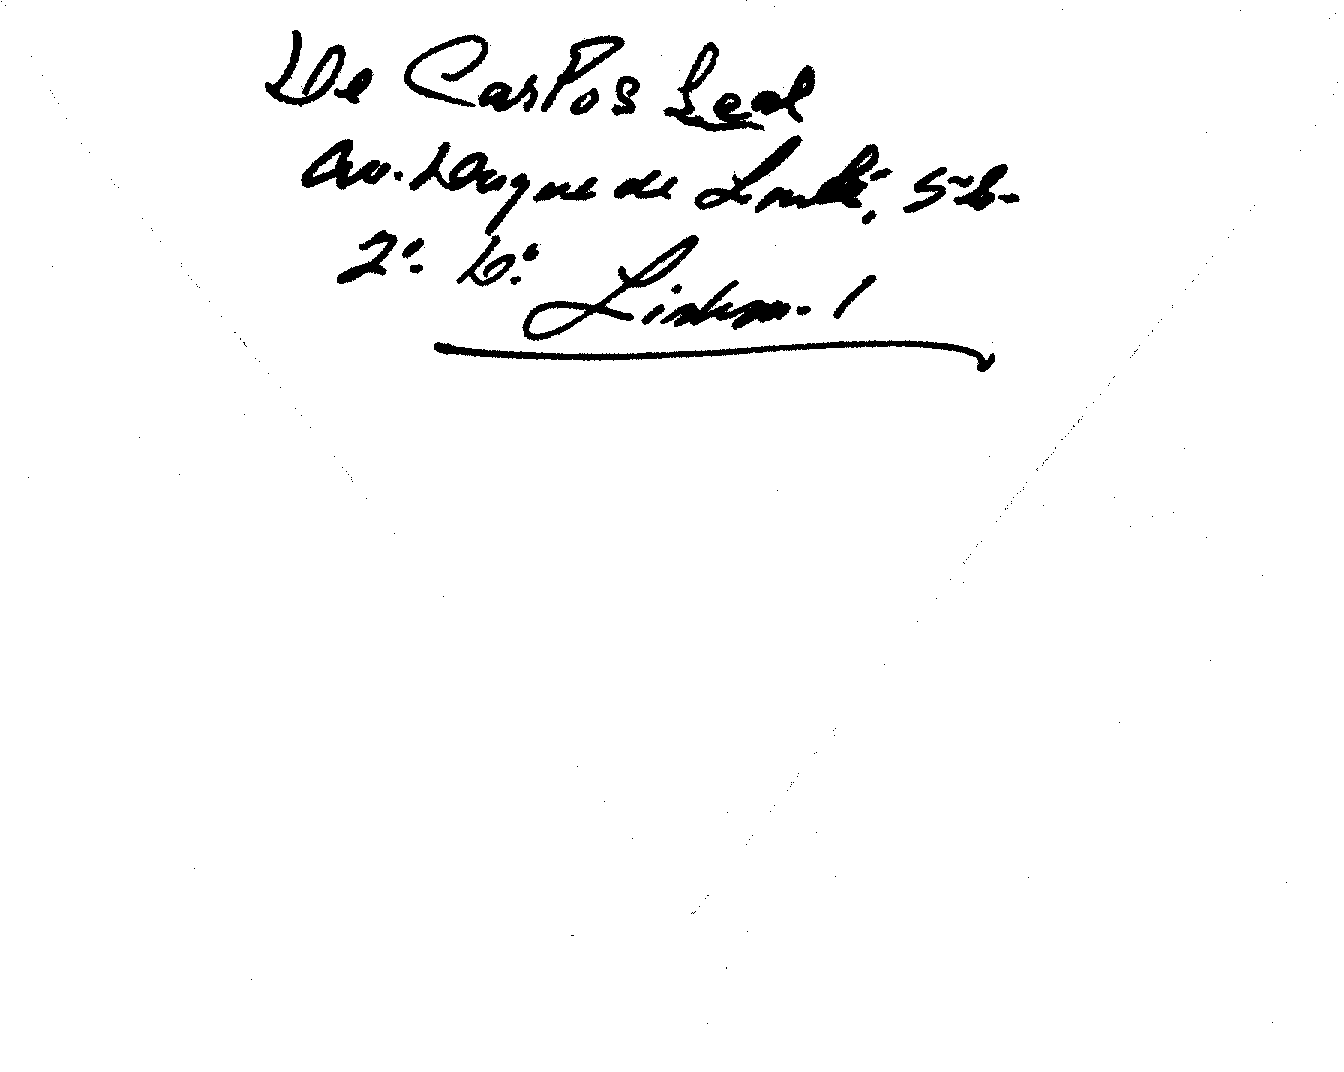 De Carlos Leal
Av. Duque de Loulé, 5-b-
2º. D.º
Lisboa-1